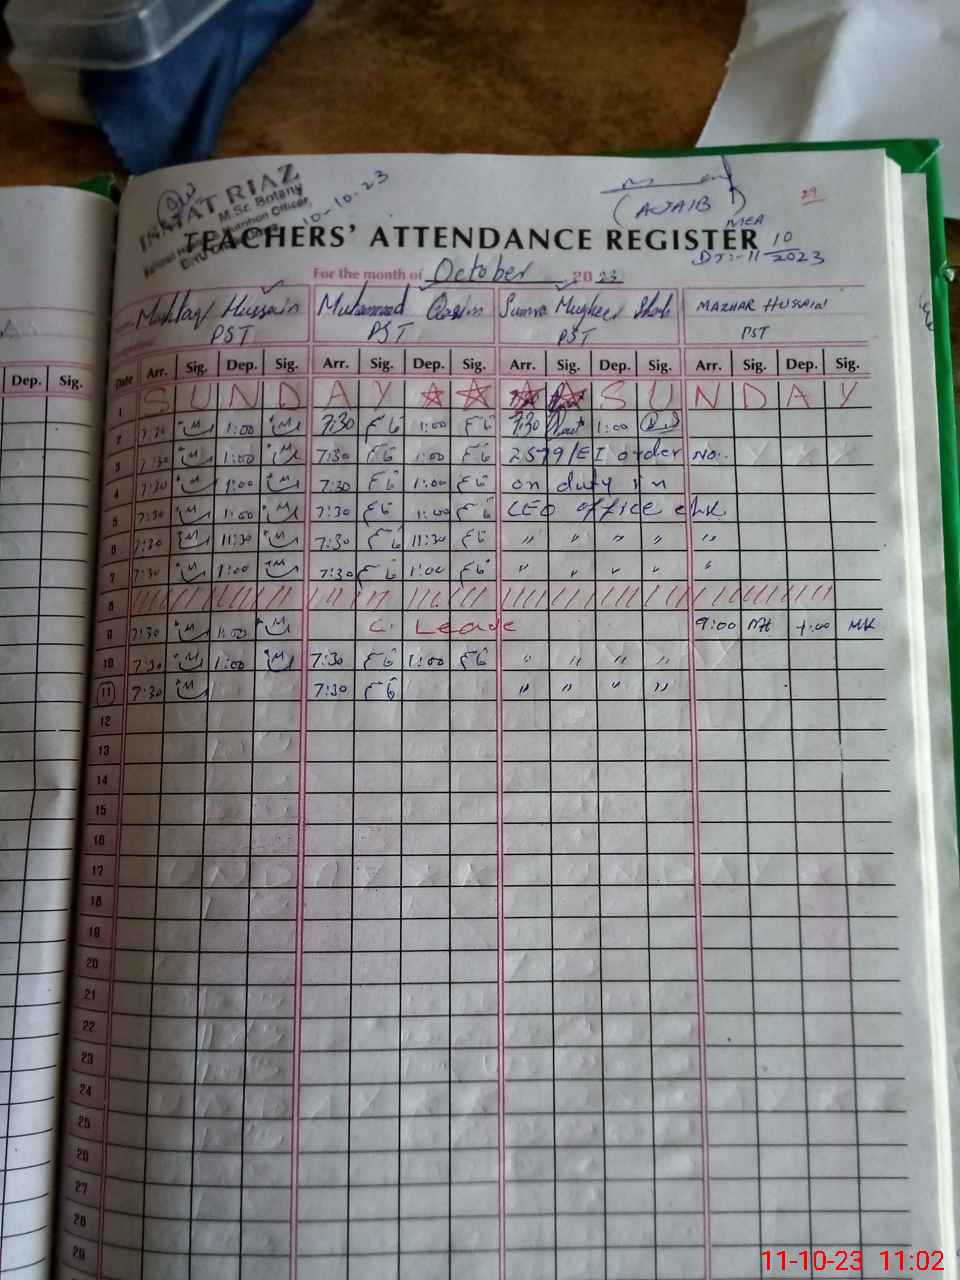 RIAZ
M.Sc. Botany
Nutrition Officer,
10-10-23
(AJAIB)
MEA
Dt:-11 10/2023
29
TEACHERS' ATTENDANCE REGISTER
For the month of October 2023
Hussain Muhammad Qasim Sumra Shah MAZHAR HUSSAIN
PST PST PST PST
Date Arr. Sig. Dep. Sig. Arr. Sig. Dep. Sig. Arr. Sig. Dep. Sig. Arr. Sig. Dep. Sig.
Dep. Sig.
1 S U N D A Y S U N D A Y
2 7:30 1:00 7:30 1:00 7:30 1:00
3 7:30 1:00 7:30 1:00 2579/EI order No.
4 7:30 1:00 7:30 1:00 on duty in
5 7:30 1:00 7:30 1:00 CEO office
6 7:30 11:30 7:30 11:30 " " " " "
7 7:30 1:00 7:30 1:00 " " " " "
8
9 7:30 1:00 C. Leave 9:00 MH 1:00 MH
10 7:30 1:00 7:30 1:00 " " " "
11 7:30 7:30 " " " "
12
13
14
15
16
17
18
19
20
21
22
23
24
25
26
27
28
29
11-10-23 11:02